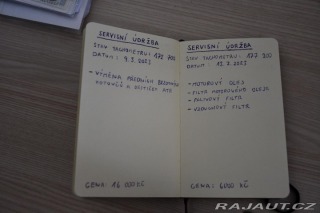 SERVISNÍ ÚDRŽBA
STAV TACHOMETRU: 172 700
DATUM: 9.3.2023
- VÝMĚNA PŘEDNÍCH BRZDOVÝCH
KOTOUČŮ A DESTIČEK ATE
CENA: 16 000 KČ
SERVISNÍ ÚDRŽBA
STAV TACHOMETRU: 177 700
DATUM: 2023
- MOTOROVÝ OLEJ
- FILTR MOTOROVÉHO OLEJE
- PALIVOVÝ FILTR
- VZDUCHOVÝ FILTR
CENA: 6000 KČ
RAJAUT.CZ